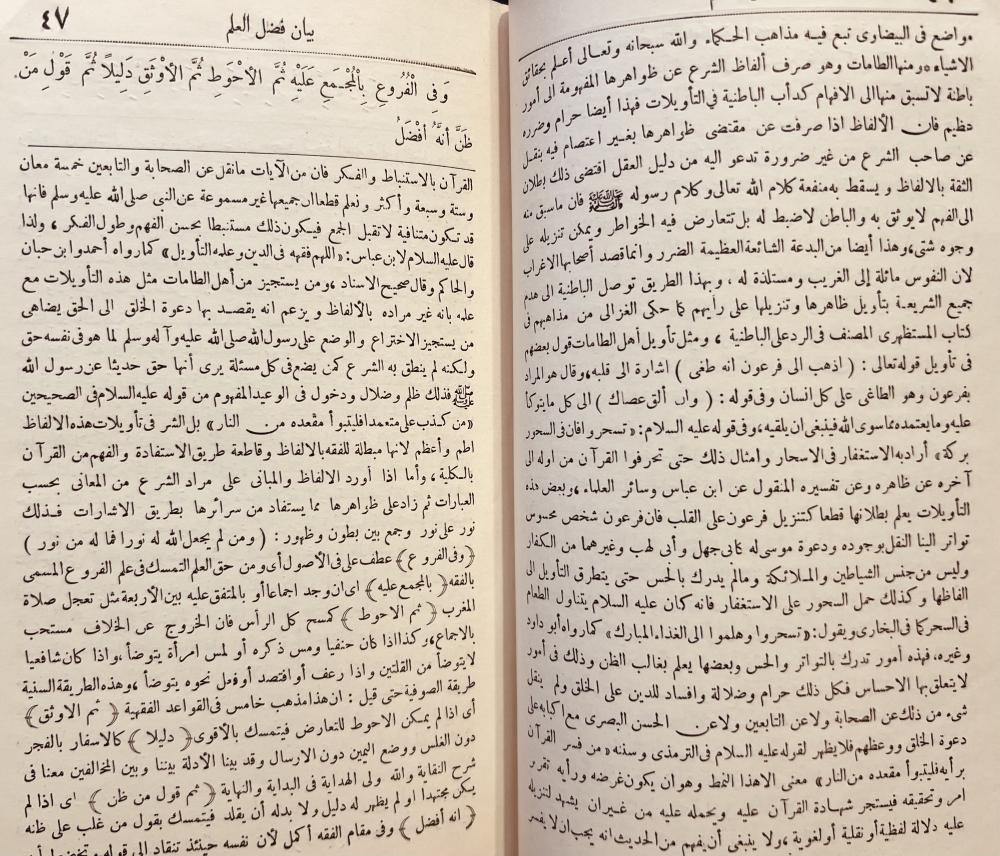 مواضع فى البيضاوى تبع فيه مذاهب الحكماء والله سبحانه وتعالى أعلم بحقائق
الاشياء ومنها الطامات وهو صرف ألفاظ الشرع عن ظواهرها المفهومة الى أمور
باطنة لا تسبق منها الى الافهام كدأب الباطنية فى التأويلات فهذا أيضا حرام وضرره
عظيم فان الألفاظ اذا صرفت عن مقتضى ظواهرها بغير اعتصام فيه بنقل
عن صاحب الشرع من غير ضرورة تدعو اليه من دليل العقل اقتضى ذلك بطلان
الثقة بالالفاظ و يسقط به منفعة كلام الله تعالى وكلام رسوله ﷺ فان ماسبق منه
الى الفهم لايوثق به والباطن لاضبط له بل تتعارض فيه الخواطر ويمكن تنزيله على
وجوه شتى، وهذا أيضا من البدعة الشائعة العظيمة الضرر وانما قصد أصحابها الاغراب
لان النفوس مائلة إلى الغريب ومستلذة له ، وبهذا الطريق توصل الباطنية الى هدم
جميع الشريعة بتأويل ظاهرها وتنزيلها على رأيهم كما حكى الغزالى من مذاهبهم فى
كتاب المستظهرى المصنف فى الرد على الباطنية ، ومثل تأويل أهل الطامات قول بعضهم
فى تأويل قوله تعالى : ( اذهب الى فرعون انه طغى ) اشارة الى قلبه، وقال هو المراد
بفرعون وهو الطاغى على كل انسان وفى قوله : ( وان ألق عصاك ) الى كل ما يتوكأ
عليه وما يعتمده مما سوى الله فينبغى ان يلقيه، وفى قوله عليه السلام: «تسحروا فان فى السحور
بركة» أراد به الاستغفار فى الاسحار وامثال ذلك حتى تحرفوا القرآن من اوله الى
آخره عن ظاهره وعن تفسيره المنقول عن ابن عباس وسائر العلماء ، وبعض هذه
التأويلات يعلم بطلانها قطعا كتنزيل فرعون على القلب فان فرعون شخص محسوس
تواتر الينا النقل بوجوده ودعوة موسى له كأبى جهل وأبى لهب وغيرهما من الكفار
وليس من جنس الشياطين والملائكة ومالم يدرك بالحس حتى يتطرق التأويل الى
الفاظها وكذلك حمل السحور على الاستغفار فانه كان عليه السلام يتناول الطعام
فى السحر كما فى البخارى ويقول: «تسحروا وهلموا الى الغذاء المبارك» كما رواه أبو داود
وغيره. فهذه أمور تدرك بالتواتر والحس وبعضها يعلم بغالب الظن وذلك فى أمور
لا يتعلق بها الاحساس فكل ذلك حرام وضلالة وافساد للدين على الخلق ولم ينقل
شىء من ذلك عن الصحابة ولا عن التابعين ولا عن الحسن البصرى مع اكبابه على
دعوة الخلق ووعظهم فلا يظهر لقوله عليه السلام فى الترمذى وسننه «من فسر القرآن
برأيه فليتبوأ مقعده من النار» معنى الا هذا النمط وهو ان يكون غرضه ورأيه تقرر
امر وتحقيقه فيستجر شهادة القرآن عليه ويحمله عليه من غير ان يشهد لتنزيله
عليه دلالة لفظية أو نقلية أو لغوية ، ولا ينبغى أن يفهم من الحديث انه يجب ان لا يفسر
٤٧
بيان فضل العلم
وَفِى الْفُرُوعِ بِالْمُجْمَعِ عَلَيْهِ ثُمَّ الْأَحْوَطِ ثُمَّ الْأَوْثَقِ دَلِيلاً ثُمَّ قَوْلِ مَنْ
ظَنَّ أَنَّهُ أَفْضَلُ
القرآن بالاستنباط والفكر فان من الآيات مانقل عن الصحابة والتابعين خمسة معان
وستة وسبعة وأكثر ونعلم قطعا ان جميعها غير مسموعة عن النبى صلى الله عليه وسلم فانها
قد تكون متنافية لا تقبل الجمع فيكون ذلك مستنبطا بحسن الفهم وطول الفكر ، ولذا
قال عليه السلام لابن عباس: «اللهم فقهه فى الدين وعلمه التأويل» كما رواه أحمد وابن حبان
والحاكم وقال صحيح الاسناد ، ومن يستجيز من أهل الطامات مثل هذه التأويلات مع
علمه بانه غير مراده بالألفاظ و يزعم انه يقصد بها دعوة الخلق الى الحق يضاهى
من يستجيز الاختراع والوضع على رسول الله صلى الله عليه وآله وسلم لما هو فى نفسه حق
ولكنه لم ينطق به الشرع كمن يضع فى كل مسئلة يرى أنها حق حديثا عن رسول الله
ﷺ فذلك ظلم وضلال ودخول فى الوعيد المفهوم من قوله عليه السلام فى الصحيحين
«من كذب على متعمدا فليتبوأ مقعده من النار» بل الشر فى تأويلات هذه الالفاظ
اطم وأعظم لانها مبطلة للفقه بالالفاظ وقاطعة طريق الاستفادة والفهم من القرآن
بالكلية ، وأما اذا أورد الالفاظ والمبانى على مراد الشرع من المعانى بحسب
العبارات ثم زاد على ظواهرها مما يستفاد من سرائرها بطريق الاشارات فذلك
نور على نور وجمع بين بطون وظهور : ( ومن لم يجعل الله له نورا فما له من نور )
﴿ وفى الفروع ﴾ عطف على فى الأصول أى ومن حق العلم التمسك فى علم الفروع المسمى
بالفقه ﴿ بالمجمع عليه ﴾ اى ان وجد اجماعا أو بالمتفق عليه بين الأربعة مثل تعجل صلاة
المغرب ﴿ ثم الاحوط ﴾ كمسح كل الرأس فان الخروج عن الخلاف مستحب
بالاجماع، وكذا اذا كان حنفيا ومس ذكره أو لمس امرأة يتوضأ ، واذا كان شافعيا
لا يتوضأ من القلتين واذا رعف أو افتصد أو فعل نحوه يتوضأ ، وهذه الطريقة السنية
طريقة الصوفية حتى قيل : ان هذا مذهب خامس فى القواعد الفقهية ﴿ ثم الاوثق ﴾
أى اذا لم يمكن الاحوط للتعارض فيتمسك بالأقوى ﴿ دليلا ﴾ كالاسفار بالفجر
دون الغلس ووضع اليمين دون الارسال وقد بينا الأدلة بيننا وبين المخالفين معنا فى
شرح النقاية والله ولى الهداية فى البداية والنهاية ﴿ ثم قول من ظن ﴾ اى اذا لم
يكن مجتهدا او لم يظهر له دليل ولا بد له أن يقلد فيتمسك بقول من غلب على ظنه
﴿ انه أفضل ﴾ وفى مقام الفقه أكمل لأن نفسه حينئذ تنقاد الى قوله